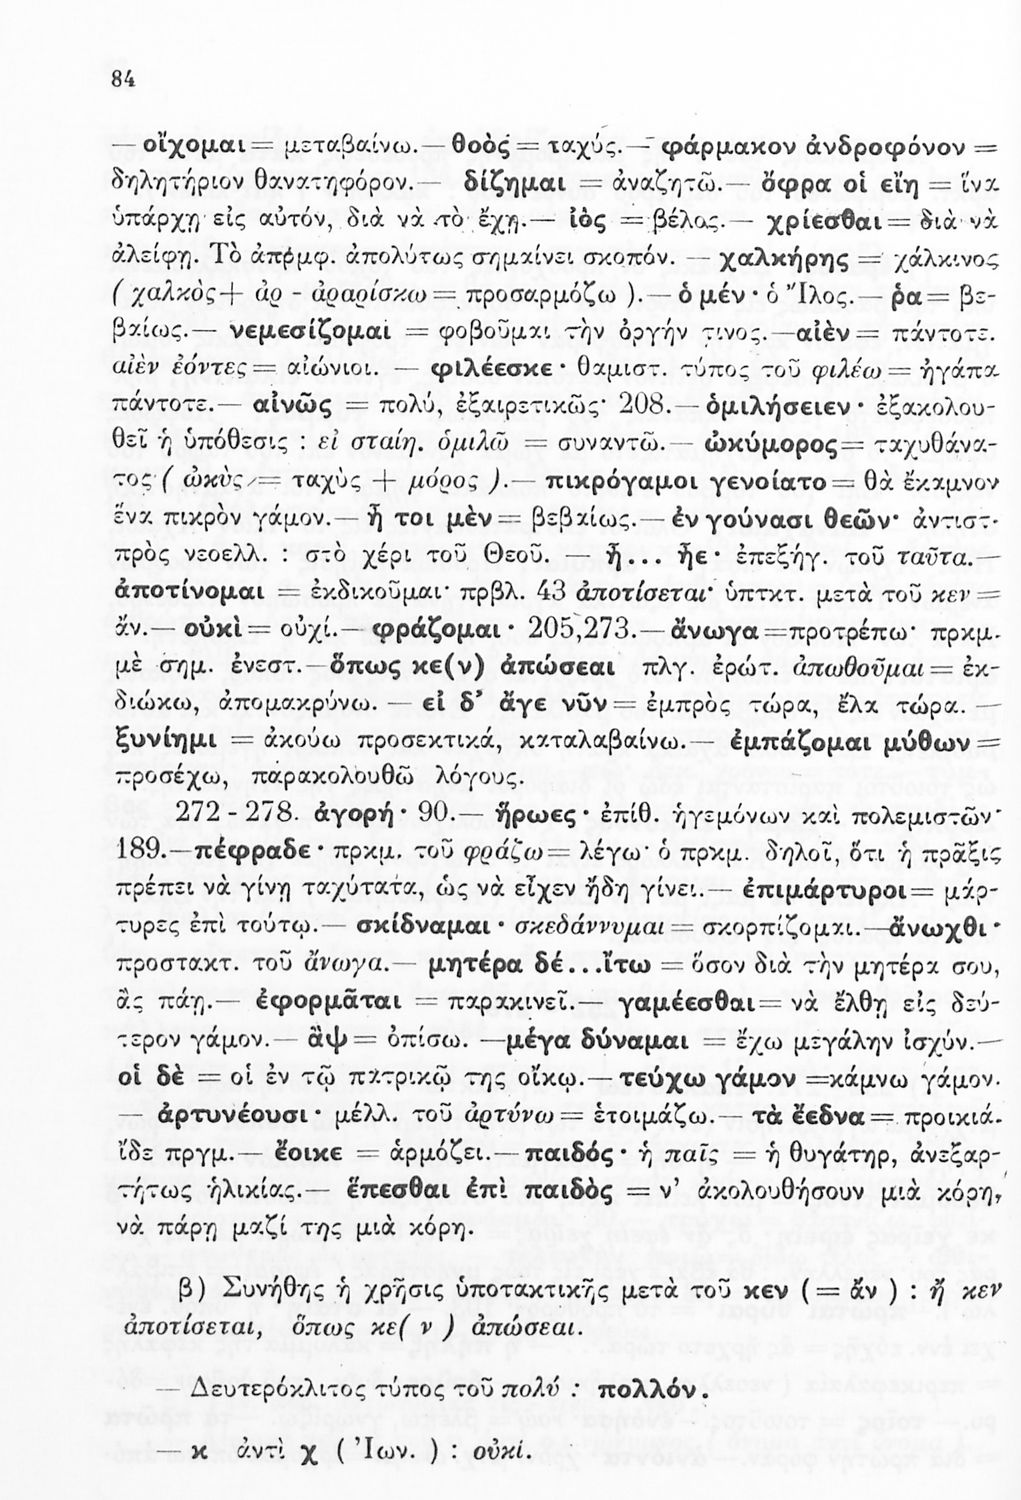 84
— οἴχομαι = μεταβαίνω.— θοὸς = ταχύς.— φάρμακον ἀνδροφόνον =
δηλητήριον θανατηφόρον.— δίζημαι = ἀναζητῶ.— ὄφρα οἱ εἴη = ἵνα
ὑπάρχῃ εἰς αὐτόν, διὰ νὰ τὸ ἔχῃ.— ἰὸς = βέλος.— χρίεσθαι = διὰ νὰ
ἀλείφῃ. Τὸ ἀπρμφ. ἀπολύτως σημαίνει σκοπόν. — χαλκήρης = χάλκινος
( χαλκὸς + ἀρ - ἀραρίσκω = προσαρμόζω ).— ὁ μέν · ὁ Ἴλος.— ῥα = βε-
βαίως.— νεμεσίζομαι = φοβοῦμαι τὴν ὀργήν τινος.—αἰὲν = πάντοτε.
αἰὲν ἐόντες = αἰώνιοι. — φιλέεσκε · θαμιστ. τύπος τοῦ φιλέω = ἠγάπα
πάντοτε.— αἰνῶς = πολύ, ἐξαιρετικῶς· 208.— ὁμιλήσειεν · ἐξακολου-
θεῖ ἡ ὑπόθεσις : εἰ σταίη. ὁμιλῶ = συναντῶ.— ὠκύμορος = ταχυθάνα-
τος ( ὠκὺς = ταχὺς + μόρος ).— πικρόγαμοι γενοίατο = θὰ ἔκαμνον
ἕνα πικρὸν γάμον.— ἦ τοι μὲν = βεβαίως.— ἐν γούνασι θεῶν· ἀντιστ.
πρὸς νεοελλ. : στὸ χέρι τοῦ Θεοῦ. — ἢ... ἦε · ἐπεξήγ. τοῦ ταῦτα.—
ἀποτίνομαι = ἐκδικοῦμαι· πρβλ. 43 ἀποτίσεται· ὑπτκτ. μετὰ τοῦ κεν =
ἄν.— οὐκὶ = οὐχί.— φράζομαι · 205,273.— ἄνωγα =προτρέπω· πρκμ.
μὲ σημ. ἐνεστ.—ὅπως κε(ν) ἀπώσεαι πλγ. ἐρώτ. ἀπωθοῦμαι = ἐκ-
διώκω, ἀπομακρύνω. — εἰ δ' ἄγε νῦν = ἐμπρὸς τώρα, ἔλα τώρα. —
ξυνίημι = ἀκούω προσεκτικά, καταλαβαίνω.— ἐμπάζομαι μύθων =
προσέχω, παρακολουθῶ λόγους.
272 - 278. ἀγορή · 90.— ἥρωες · ἐπίθ. ἡγεμόνων καὶ πολεμιστῶν·
189.—πέφραδε · πρκμ. τοῦ φράζω = λέγω· ὁ πρκμ. δηλοῖ, ὅτι ἡ πρᾶξις
πρέπει νὰ γίνῃ ταχύτατα, ὡς νὰ εἶχεν ἤδη γίνει.— ἐπιμάρτυροι = μάρ-
τυρες ἐπὶ τούτῳ.— σκίδναμαι · σκεδάννυμαι = σκορπίζομαι.—ἄνωχθι ·
προστακτ. τοῦ ἄνωγα.— μητέρα δέ...ἴτω = ὅσον διὰ τὴν μητέρα σου,
ἂς πάῃ.— ἐφορμᾶται = παρακινεῖ.— γαμέεσθαι = νὰ ἔλθῃ εἰς δεύ-
τερον γάμον.— ἂψ = ὀπίσω. —μέγα δύναμαι = ἔχω μεγάλην ἰσχύν.—
οἱ δὲ = οἱ ἐν τῷ πατρικῷ της οἴκῳ.— τεύχω γάμον =κάμνω γάμον.
— ἀρτυνέουσι · μέλλ. τοῦ ἀρτύνω = ἑτοιμάζω.— τὰ ἔεδνα = προικιά.
ἴδε πργμ.— ἔοικε = ἁρμόζει.— παιδός · ἡ παῖς = ἡ θυγάτηρ, ἀνεξαρ-
τήτως ἡλικίας.— ἕπεσθαι ἐπὶ παιδὸς = ν' ἀκολουθήσουν μιὰ κόρη,
νὰ πάρῃ μαζί της μιὰ κόρη.
β) Συνήθης ἡ χρῆσις ὑποτακτικῆς μετὰ τοῦ κεν (= ἄν ) : ἤ κεν
ἀποτίσεται, ὅπως κε( ν ) ἀπώσεαι.
— Δευτερόκλιτος τύπος τοῦ πολύ : πολλόν.
— κ ἀντὶ χ ( Ἰων. ) : οὐκί.